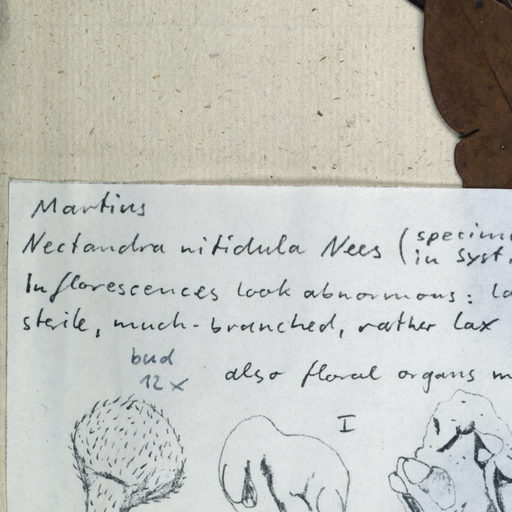 Martius
Nectandra nitidula Nees (
in Syst.
Inflorescences look abnormous:
sterile, much-branched, rather lax
bud
12 x
also floral organs
I